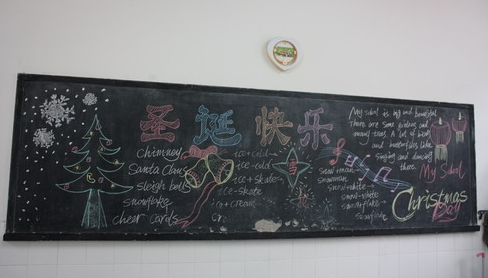 圣诞快乐
chimney
Santa Claus
sleigh bells
snowflake
cheer cards
ice+cold→
ice-cold
ice+skate→
ice-skate
ice+cream→
snow+man→
snowman
snow+white
snow-white
snow+flake→
snowflake
My school is big and beautiful.
There are some
many trees. A lot of
and butterflies like
singing and dancing
there.
My School
Christmas
Day